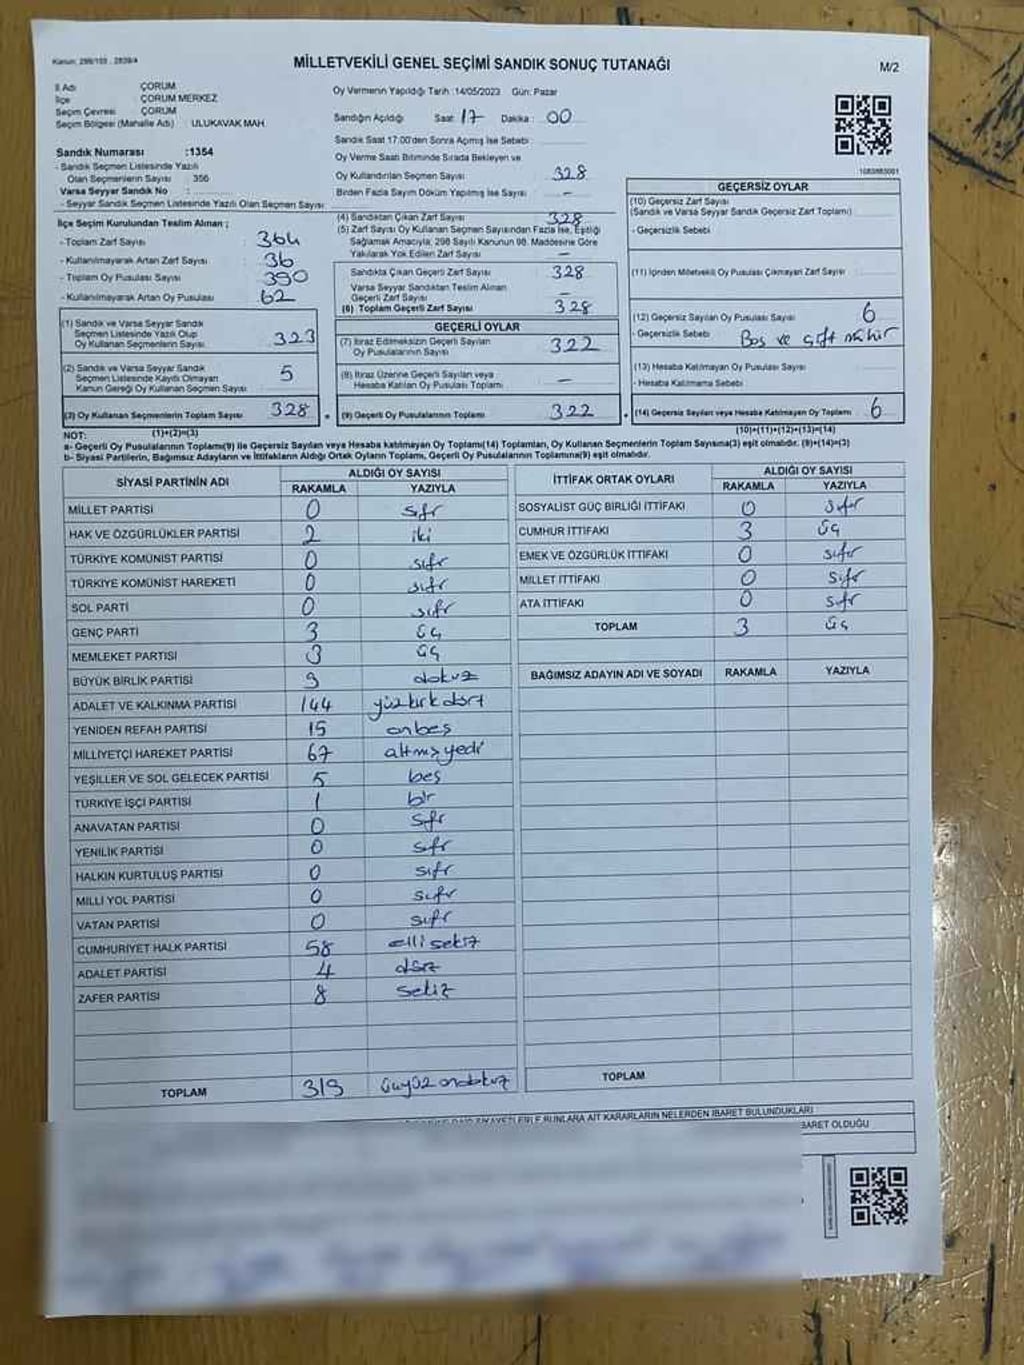 Kanun: 298/103 , 2839/A
MİLLETVEKİLİ GENEL SEÇİMİ SANDIK SONUÇ TUTANAĞI
M/2
İl Adı ÇORUM
İlçe ÇORUM MERKEZ
Seçim Çevresi ÇORUM
Seçim Bölgesi (Mahalle Adı) : ULUKAVAK MAH.
Sandık Numarası :1354
- Sandık Seçmen Listesinde Yazılı
Olan Seçmenlerin Sayısı 356
Varsa Seyyar Sandık No :
- Seyyar Sandık Seçmen Listesinde Yazılı Olan Seçmen Sayısı:
Oy Vermenin Yapıldığı Tarih :14/05/2023 Gün: Pazar
Sandığın Açıldığı Saat: 17 Dakika : 00
Sandık Saat 17.00'den Sonra Açılmış İse Sebebi :
Oy Verme Saati Bitiminde Sırada Bekleyen ve
Oy Kullandırılan Seçmen Sayısı : 328
Birden Fazla Sayım Döküm Yapılmış İse Sayısı : –
1083883001
İlçe Seçim Kurulundan Teslim Alınan ;
- Toplam Zarf Sayısı : 364
- Kullanılmayarak Artan Zarf Sayısı : 36
- Toplam Oy Pusulası Sayısı : 390
- Kullanılmayarak Artan Oy Pusulası : 62
(1) Sandık ve Varsa Seyyar Sandık
Seçmen Listesinde Yazılı Olup
Oy Kullanan Seçmenlerin Sayısı : 323
(2) Sandık ve Varsa Seyyar Sandık
Seçmen Listesinde Kayıtlı Olmayan
Kanun Gereği Oy Kullanan Seçmen Sayısı : 5
(3) Oy Kullanan Seçmenlerin Toplam Sayısı 328
(1)+(2)=(3)
(4) Sandıktan Çıkan Zarf Sayısı 328
(5) Zarf Sayısı Oy Kullanan Seçmen Sayısından Fazla İse, Eşitliği
Sağlamak Amacıyla, 298 Sayılı Kanunun 98. Maddesine Göre
Yakılarak Yok Edilen Zarf Sayısı –
Sandıkta Çıkan Geçerli Zarf Sayısı 328
Varsa Seyyar Sandıktan Teslim Alınan
Geçerli Zarf Sayısı –
(6) Toplam Geçerli Zarf Sayısı : 328
GEÇERLİ OYLAR
(7) İtiraz Edilmeksizin Geçerli Sayılan
Oy Pusulalarının Sayısı : 322
(8) İtiraz Üzerine Geçerli Sayılan veya
Hesaba Katılan Oy Pusulası Toplamı : –
(9) Geçerli Oy Pusulalarının Toplamı : 322
GEÇERSİZ OYLAR
(10) Geçersiz Zarf Sayısı
(Sandık ve Varsa Seyyar Sandık Geçersiz Zarf Toplamı) :
- Geçersizlik Sebebi :
(11) İçinden Milletvekili Oy Pusulası Çıkmayan Zarf Sayısı :
(12) Geçersiz Sayılan Oy Pusulası Sayısı : 6
- Geçersizlik Sebebi : Boş ve çift mühür
(13) Hesaba Katılmayan Oy Pusulası Sayısı :
- Hesaba Katılmama Sebebi :
(14) Geçersiz Sayılan veya Hesaba Katılmayan Oy Toplamı : 6
(10)+(11)+(12)+(13)=(14)
NOT:
a- Geçerli Oy Pusulalarının Toplamı(9) ile Geçersiz Sayılan veya Hesaba katılmayan Oy Toplamı(14) Toplamları, Oy Kullanan Seçmenlerin Toplam Sayısına(3) eşit olmalıdır. (9)+(14)=(3)
b- Siyasi Partilerin, Bağımsız Adayların ve İttifakların Aldığı Ortak Oyların Toplamı, Geçerli Oy Pusulalarının Toplamına(9) eşit olmalıdır.
SİYASİ PARTİNİN ADI ALDIĞI OY SAYISI
RAKAMLA YAZIYLA
MİLLET PARTİSİ 0 sıfır
HAK VE ÖZGÜRLÜKLER PARTİSİ 2 iki
TÜRKİYE KOMÜNİST PARTİSİ 0 sıfır
TÜRKİYE KOMÜNİST HAREKETİ 0 sıfır
SOL PARTİ 0 sıfır
GENÇ PARTİ 3 üç
MEMLEKET PARTİSİ 3 üç
BÜYÜK BİRLİK PARTİSİ 9 dokuz
ADALET VE KALKINMA PARTİSİ 144 yüzkırkdört
YENİDEN REFAH PARTİSİ 15 onbeş
MİLLİYETÇİ HAREKET PARTİSİ 67 altmışyedi
YEŞİLLER VE SOL GELECEK PARTİSİ 5 beş
TÜRKİYE İŞÇİ PARTİSİ 1 bir
ANAVATAN PARTİSİ 0 sıfır
YENİLİK PARTİSİ 0 sıfır
HALKIN KURTULUŞ PARTİSİ 0 sıfır
MİLLİ YOL PARTİSİ 0 sıfır
VATAN PARTİSİ 0 sıfır
CUMHURİYET HALK PARTİSİ 58 ellisekiz
ADALET PARTİSİ 4 dört
ZAFER PARTİSİ 8 sekiz
TOPLAM 319 üçyüzondokuz
İTTİFAK ORTAK OYLARI ALDIĞI OY SAYISI
RAKAMLA YAZIYLA
SOSYALİST GÜÇ BİRLİĞİ İTTİFAKI 0 sıfır
CUMHUR İTTİFAKI 3 üç
EMEK VE ÖZGÜRLÜK İTTİFAKI 0 sıfır
MİLLET İTTİFAKI 0 sıfır
ATA İTTİFAKI 0 sıfır
TOPLAM 3 üç
BAĞIMSIZ ADAYIN ADI VE SOYADI RAKAMLA YAZIYLA
TOPLAM
ŞİKAYETLERLE BUNLARA AİT KARARLARIN NELERDEN İBARET BULUNDUKLARI
İBARET OLDUĞU